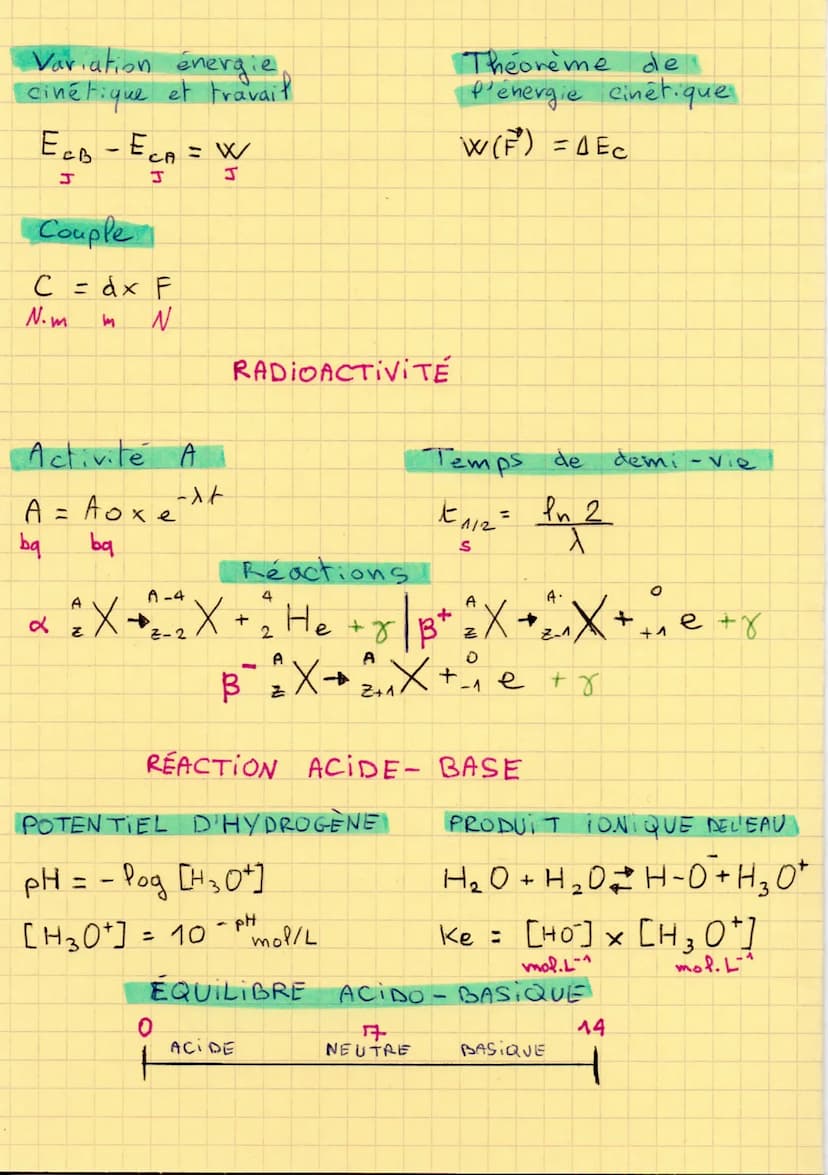 Variation énergie
cinétique et travail
E_cB - E_cA = W
J J J
Théorème de
l'énergie cinétique
W(F⃗) = ΔEc
Couple
C = d x F
N.m m N
RADIOACTIVITÉ
Activité A
A = A0 x e^-λt
bq bq
Temps de demi-vie
t_1/2 = ln 2 / λ
s
Réactions
α ^A_Z X → ^A-4_Z-2 X + ^4_2 He + γ | β⁺ ^A_Z X → ^A_Z-1 X + ^0_+1 e + γ
β⁻ ^A_Z X → ^A_Z+1 X + ^0_-1 e + γ
RÉACTION ACIDE-BASE
POTENTIEL D'HYDROGÈNE
pH = - log [H₃O⁺]
[H₃O⁺] = 10^-pH mol/L
PRODUIT IONIQUE DE L'EAU
H₂O + H₂O ⇄ H-O⁻ + H₃O⁺
Ke = [HO⁻] x [H₃O⁺]
mol.L⁻¹ mol.L⁻¹
ÉQUILIBRE ACIDO-BASIQUE
0 7 14
ACIDE NEUTRE BASIQUE